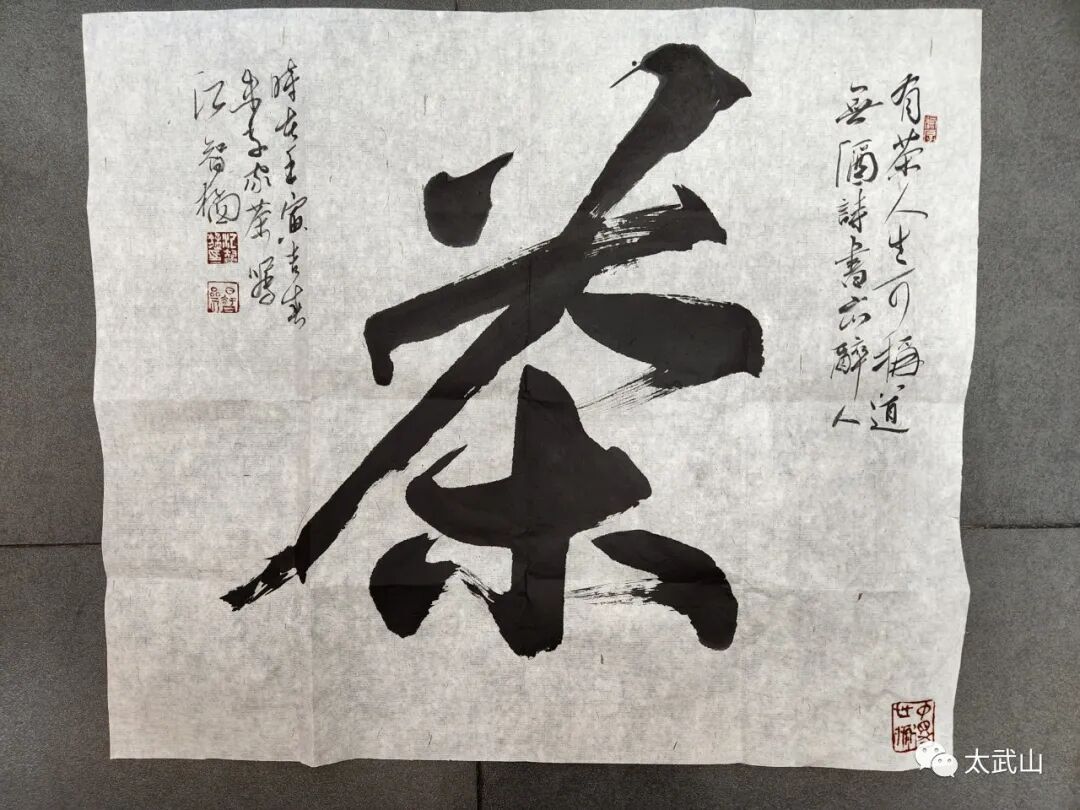 有茶人生可稱道
無酒詩書亦醉人
茶
時在壬寅吉春
朱子家茶
江智
太武山